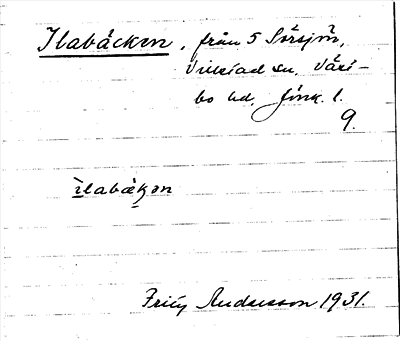 Ilabäcken, från 5 Sörsjön,
Vireda sn, Vist-
bo hd, Jönk. l.
9.
ìlabäkən
Fritz Andersson 1931.